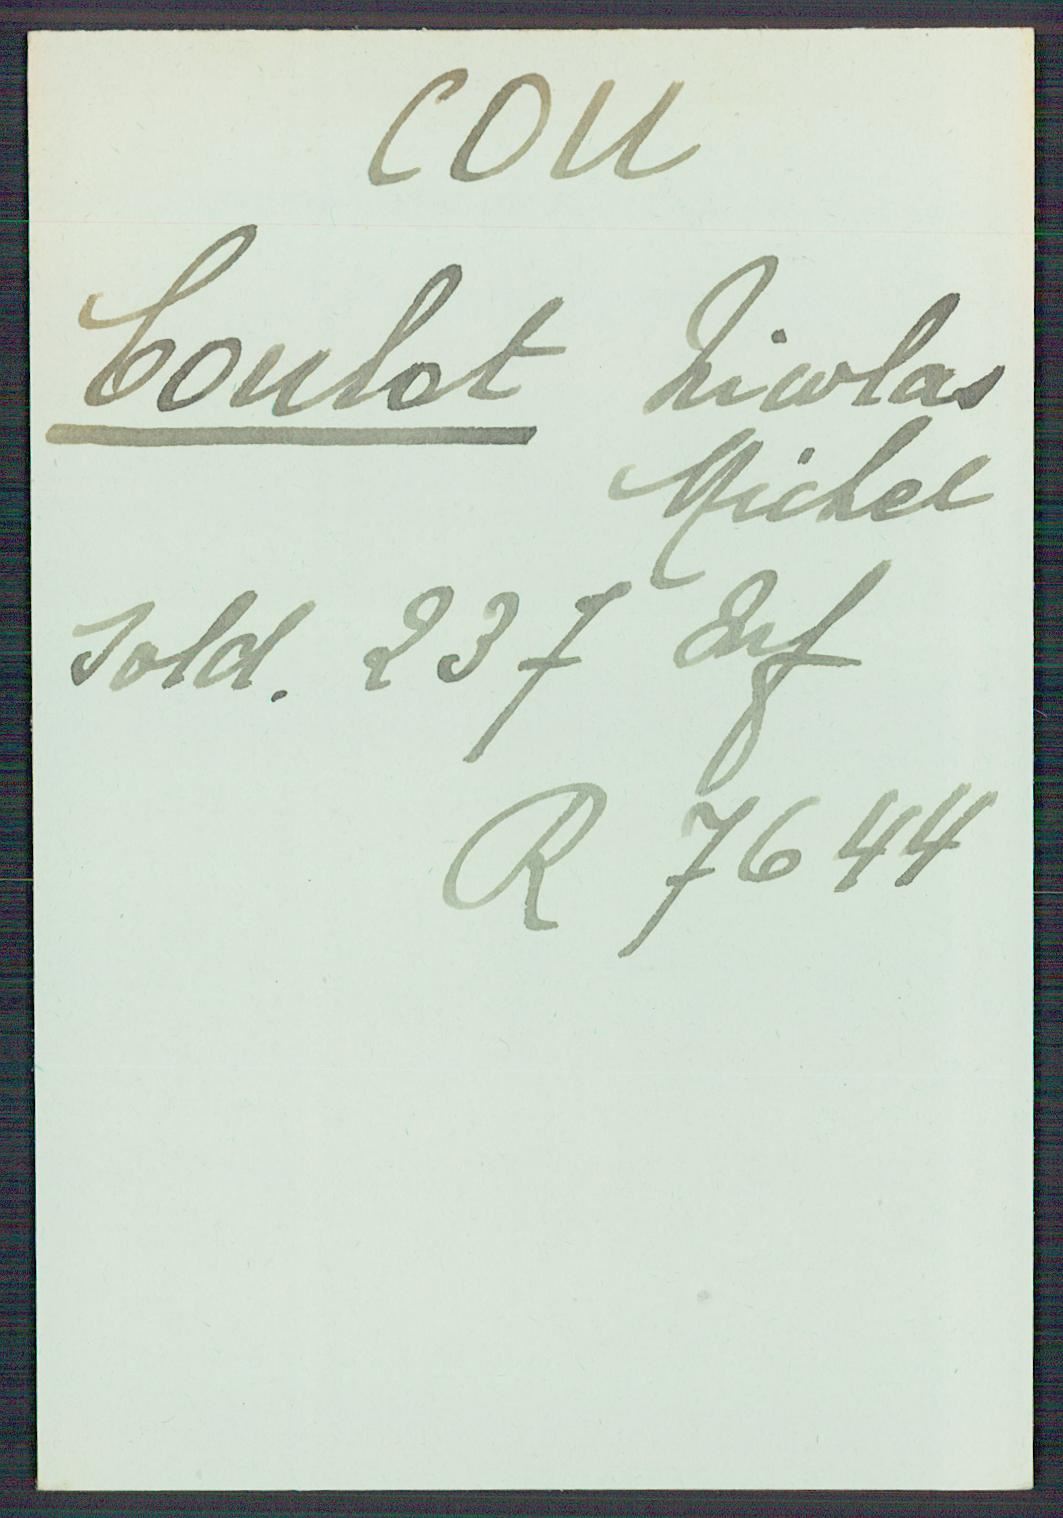 COU
Coulot Nicolas
Michel
Sold. 237 Inf
R 7644